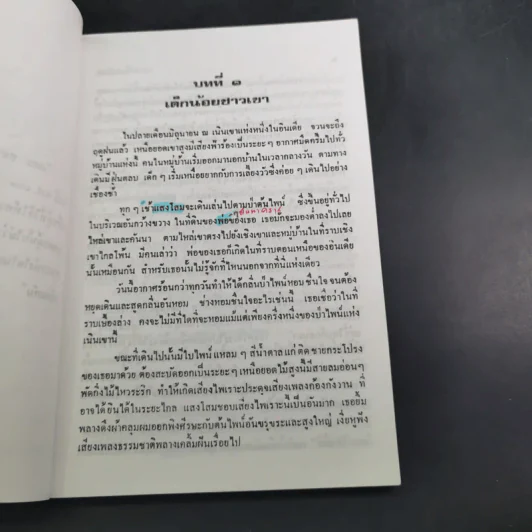 บทที่ ๑
เด็กน้อยชาวเขา
ในปลายเดือนมิถุนายน ณ เนินเขาแห่งหนึ่งในอินเดีย จวนจะถึง
ฤดูฝนแล้ว เหนือยอดเขาสูงมีเสียงฟ้าร้องเป็นระยะๆ อากาศมืดครึ้มไปทั่ว
หมู่บ้านแห่งนี้ คนในหมู่บ้านเริ่มออกมานอกบ้านในเวลากลางวัน ตามทาง
เดินมีฝุ่นตลบ เด็ก ๆ เริ่มเหนื่อยอากกับการเลี้ยงวัวซึ่งค่อยๆ เดินไปอย่าง
เชื่องช้า
ทุก ๆ เช้าแสงโสมจะเดินเล่นไปตามป่าต้นไพน์ ซึ่งขึ้นอยู่ทั่วไป
ในบริเวณอันกว้างขวาง ในที่ดินของพ่อของเธอ เธอมักจะมองดาลงไปเลย
ไหล่เขาและคันนา ตามไหล่เขาตรงไปยังเชิงเขาและหมู่บ้านในที่ราบเชิง
เขาไกลโพ้น มีคนเล่าว่า พ่อของเธอก็เกิดในที่ราบตอนเหนือของอินเดีย
นั่นเหมือนกัน สำหรับเธอนั้นไม่รู้จักที่ไหนนอกจากที่นี่แห่งเดียว
วันนี้อากาศร้อนกว่าทุกวันทำให้ได้กลิ่นป่าไพน์หอมชื่นใจ จนต้อง
หยุดเดินและสูดกลิ่นอันหอม ช่างหอมชื่นใจอะไรเช่นนี้ เธอเชื่อว่าในที่
ราบเบื้องล่าง คงจะไม่มีที่ใดที่จะหอมแม้แต่เพียงครึ่งหนึ่งของป่าไพน์แห่ง
เนินเขานี้
ขณะที่เดินไปนั้นมีใบไพน์แหลม ๆ สีน้ำตาลแก่ ติดชายกระโปรง
ของเธอมาด้วย ต้องสะบัดออกเป็นระยะๆ เหนือยอดไม้สูงนั้นมีสายลมอ่อนๆ
พัดกิ่งไม้ไหวระริก ทำให้เกิดเสียงไพเราะประดุจเสียงเพลงก้องกังวาน ที่
อาจได้ยินได้ในระยะไกล แสงโสมชอบเสียงไพเราะนี้เป็นอันมาก เธอยิ้ม
พลางดึงผ้าคลุมผมออกพิงศีรษะกับต้นไพน์อันขรุขระและสูงใหญ่ เงี่ยหูฟัง
เสียงเพลงธรรมชาติพลางเคลิ้มฝันเรื่อยไป